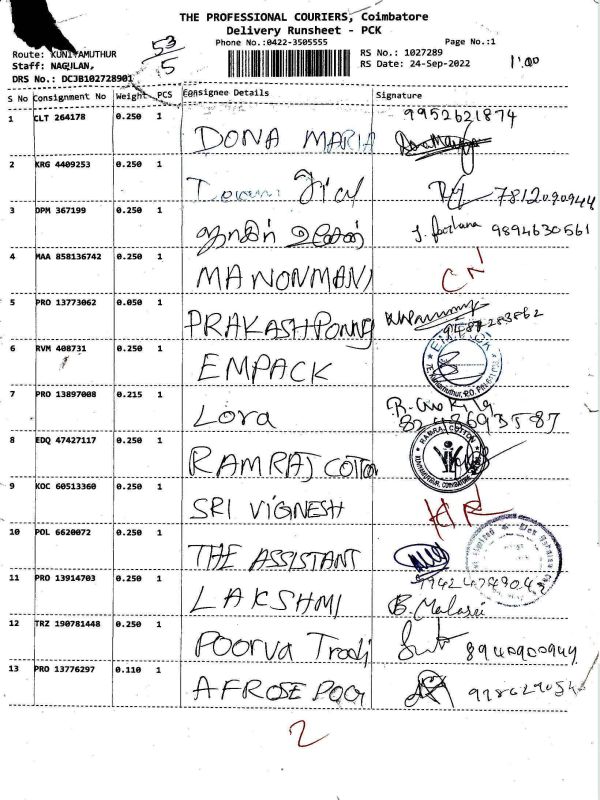 THE PROFESSIONAL COURIERS, Coimbatore
Delivery Runsheet - PCK
Phone No.:0422-3505555 Page No.:1
Route: KUNIYAMUTHUR 53/5 RS No.: 1027289
Staff: NAGULAN, RS Date: 24-Sep-2022 1'00
DRS No.: DCJB102728901
S No Consignment No Weight PCS Consignee Details Signature
1 CLT 264178 0.250 1 DONA MARIA 9952621874
2 KRG 4409253 0.250 1 7812090944
3 DPM 367199 0.250 1 9894630561
4 MAA 858136742 0.250 1 MANONMANI CN
5 PRO 13773062 0.050 1 PRAKASH PONNG 9487283862
6 RVM 408731 0.250 1 EMPACK EMPACK
7 PRO 13897008 0.215 1 Lora
8 EDQ 47427117 0.250 1 RAMRAJ COTTON RAMRAJ COTTON
9 KOC 60513360 0.250 1 SRI VIGNESH
10 POL 6620072 0.250 1 THE ASSISTANT
11 PRO 13914703 0.250 1 LAKSHMI
12 TRZ 190781448 0.250 1 POORVA Tradj 8940900949
13 PRO 13776297 0.110 1 AFROSE POOJ
2